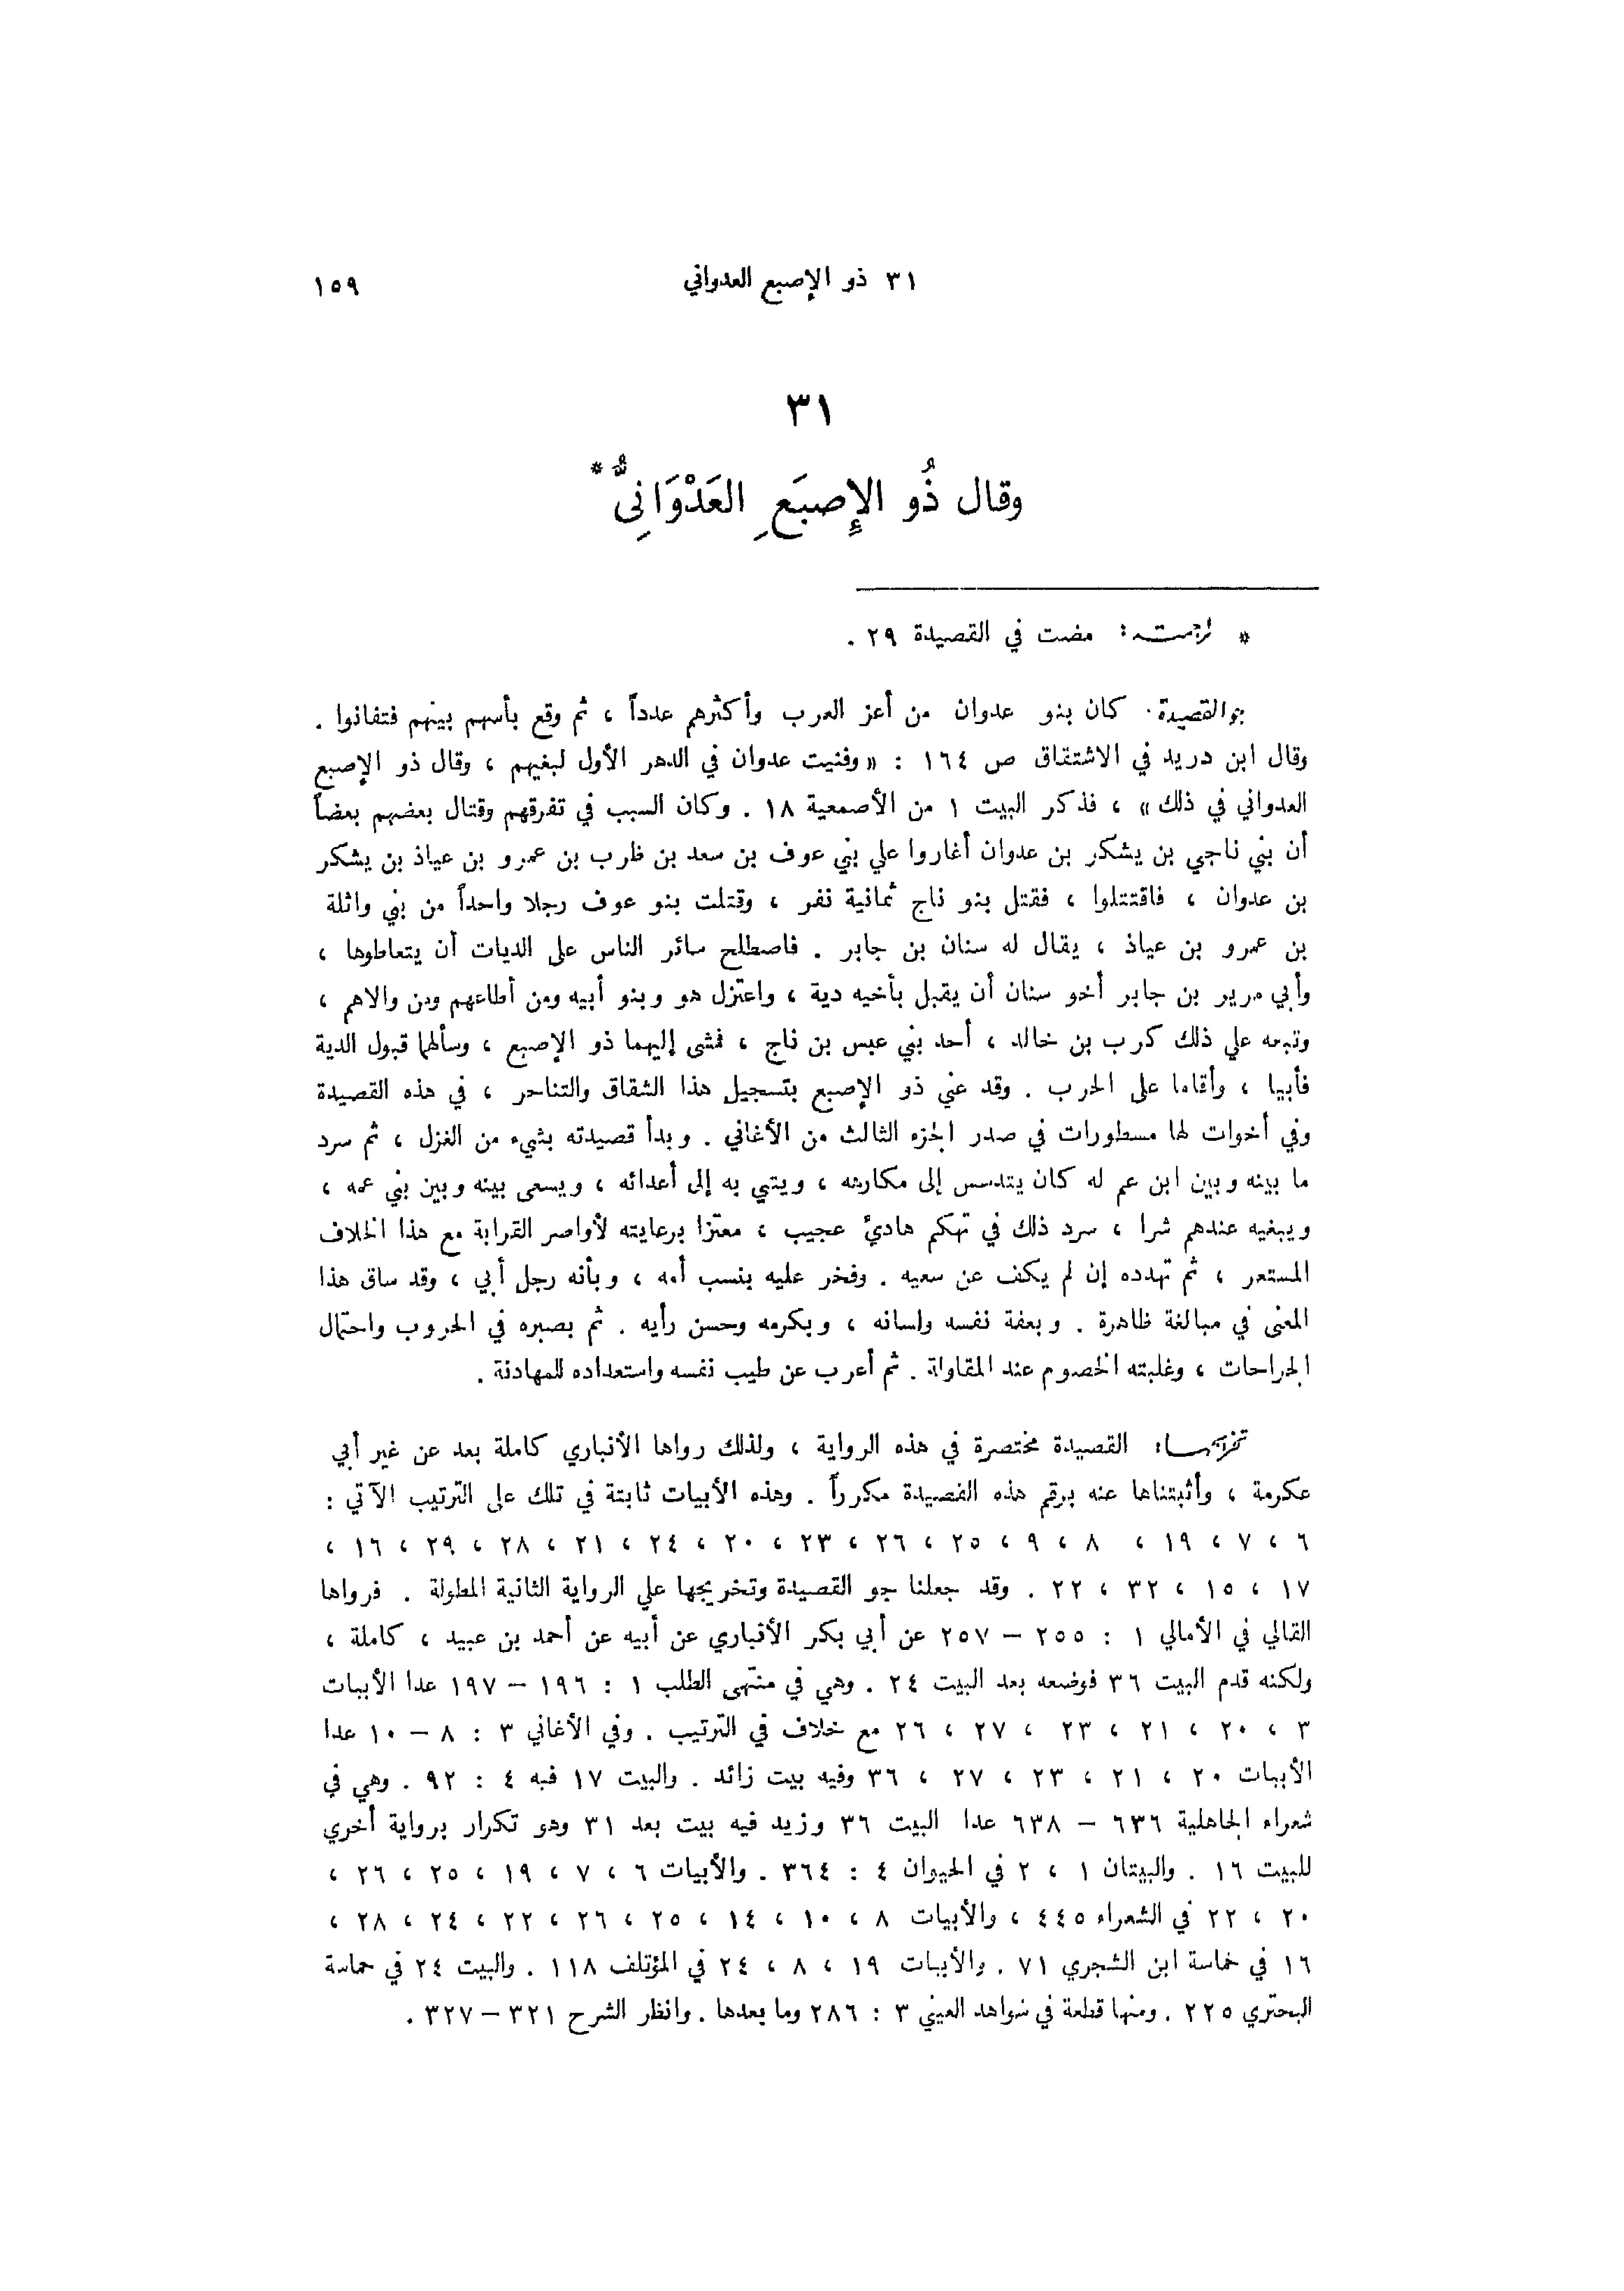 ٣١ ذو الإصبع العدواني
١٥٩
٣١
وقال ذُو الإِصبَعِ العَدْوَانِىُّ *
* ترجمته: مضت في القصيدة ٢٩ .
جو القصيدة: كان بنو عدوان من أعز العرب وأكثرهم عدداً ، ثم وقع بأسهم بينهم فتفانوا .
وقال ابن دريد في الاشتقاق ص ١٦٤ : «وفنيت عدوان في الدهر الأول لبغيهم ، وقال ذو الإصبع
العدواني في ذلك» ، فذكر البيت ١ من الأصمعية ١٨ . وكان السبب في تفرقهم وقتال بعضهم بعضاً
أن بني ناجي بن يشكر بن عدوان أغاروا علي بني عوف بن سعد بن ظرب بن عمرو بن عياذ بن يشكر
بن عدوان ، فاقتتلوا ، فقتل بنو ناج ثمانية نفر ، وقتلت بنو عوف رجلا واحداً من بني واثلة
بن عمرو بن عياذ ، يقال له سنان بن جابر . فاصطلح سائر الناس على الديات أن يتعاطوها ،
وأبي مرير بن جابر أخو سنان أن يقبل بأخيه دية ، واعتزل هو وبنو أبيه ومن أطاعهم ومن والاهم ،
وتبعه علي ذلك كرب بن خالد ، أحد بني عبس بن ناج ، فمشى إليهما ذو الإصبع ، وسألهما قبول الدية
فأبيا ، وأقاما على الحرب . وقد عني ذو الإصبع بتسجيل هذا الشقاق والتناحر ، في هذه القصيدة
وفي أخوات لها مسطورات في صدر الجزء الثالث من الأغاني . وبدأ قصيدته بشيء من الغزل ، ثم سرد
ما بينه وبين ابن عم له كان يتدسس إلى مكارهه ، ويتي به إلى أعدائه ، ويسعى بينه وبين بني عمه ،
ويبغيه عندهم شرا ، سرد ذلك في تهكم هادئ عجيب ، معتزا برعايته لأواصر القرابة مع هذا الخلاف
المستعر ، ثم تهدده إن لم يكف عن سعيه . وفخر عليه بنسب أمه ، وبأنه رجل أبي ، وقد ساق هذا
المعنى في مبالغة ظاهرة . وبعفة نفسه ولسانه ، وبكرمه وحسن رأيه . ثم بصبره في الحروب واحتمال
الجراحات ، وغلبته الخصوم عند المقاولة . ثم أعرب عن طيب نفسه واستعداده للمهادنة .
تخريجها: القصيدة مختصرة في هذه الرواية ، ولذلك رواها الأنباري كاملة بعد عن غير أبي
عكرمة ، وأثبتناها عنه برقم هذه القصيدة مكرراً . وهذه الأبيات ثابتة في تلك على الترتيب الآتي :
٦ ، ٧ ، ١٩ ، ٨ ، ٩ ، ٢٥ ، ٢٦ ، ٢٣ ، ٢٠ ، ٢٤ ، ٢١ ، ٢٨ ، ٢٩ ، ١٦ ،
١٧ ، ١٥ ، ٣٢ ، ٢٢ . وقد جعلنا جو القصيدة وتخريجها علي الرواية الثانية المطولة . فرواها
القالي في الأمالي ١ : ٢٥٥ – ٢٥٧ عن أبي بكر الأنباري عن أبيه عن أحمد بن عبيد ، كاملة ،
ولكنه قدم البيت ٣٦ فوضعه بعد البيت ٢٤ . وهي في منتهى الطلب ١ : ١٩٦ – ١٩٧ عدا الأبيات
٣ ، ٢٠ ، ٢١ ، ٢٣ ، ٢٧ ، ٢٦ مع خلاف في الترتيب . وفي الأغاني ٣ : ٨ – ١٠ عدا
الأبيات ٢٠ ، ٢١ ، ٢٣ ، ٢٧ ، ٣٦ وفيه بيت زائد . والبيت ١٧ فيه ٤ : ٩٢ . وهي في
شعراء الجاهلية ٦٣٦ – ٦٣٨ عدا البيت ٣٦ وزيد فيه بيت بعد ٣١ وهو تكرار برواية أخري
للبيت ١٦ . والبيتان ١ ، ٢ في الحيوان ٤ : ٣٦٤ . والأبيات ٦ ، ٧ ، ١٩ ، ٢٥ ، ٢٦ ،
٢٠ ، ٢٢ في الشعراء ٤٤٥ ، والأبيات ٨ ، ١٠ ، ١٤ ، ٢٥ ، ٢٦ ، ٢٢ ، ٢٤ ، ٢٨ ،
١٦ في حماسة ابن الشجري ٧١ . والأبيات ١٩ ، ٨ ، ٢٤ في المؤتلف ١١٨ . والبيت ٢٤ في حماسة
البحتري ٢٢٥ . ومنها قطعة في شواهد العيني ٣ : ٢٨٦ وما بعدها . وانظر الشرح ٣٢١ – ٣٢٧ .